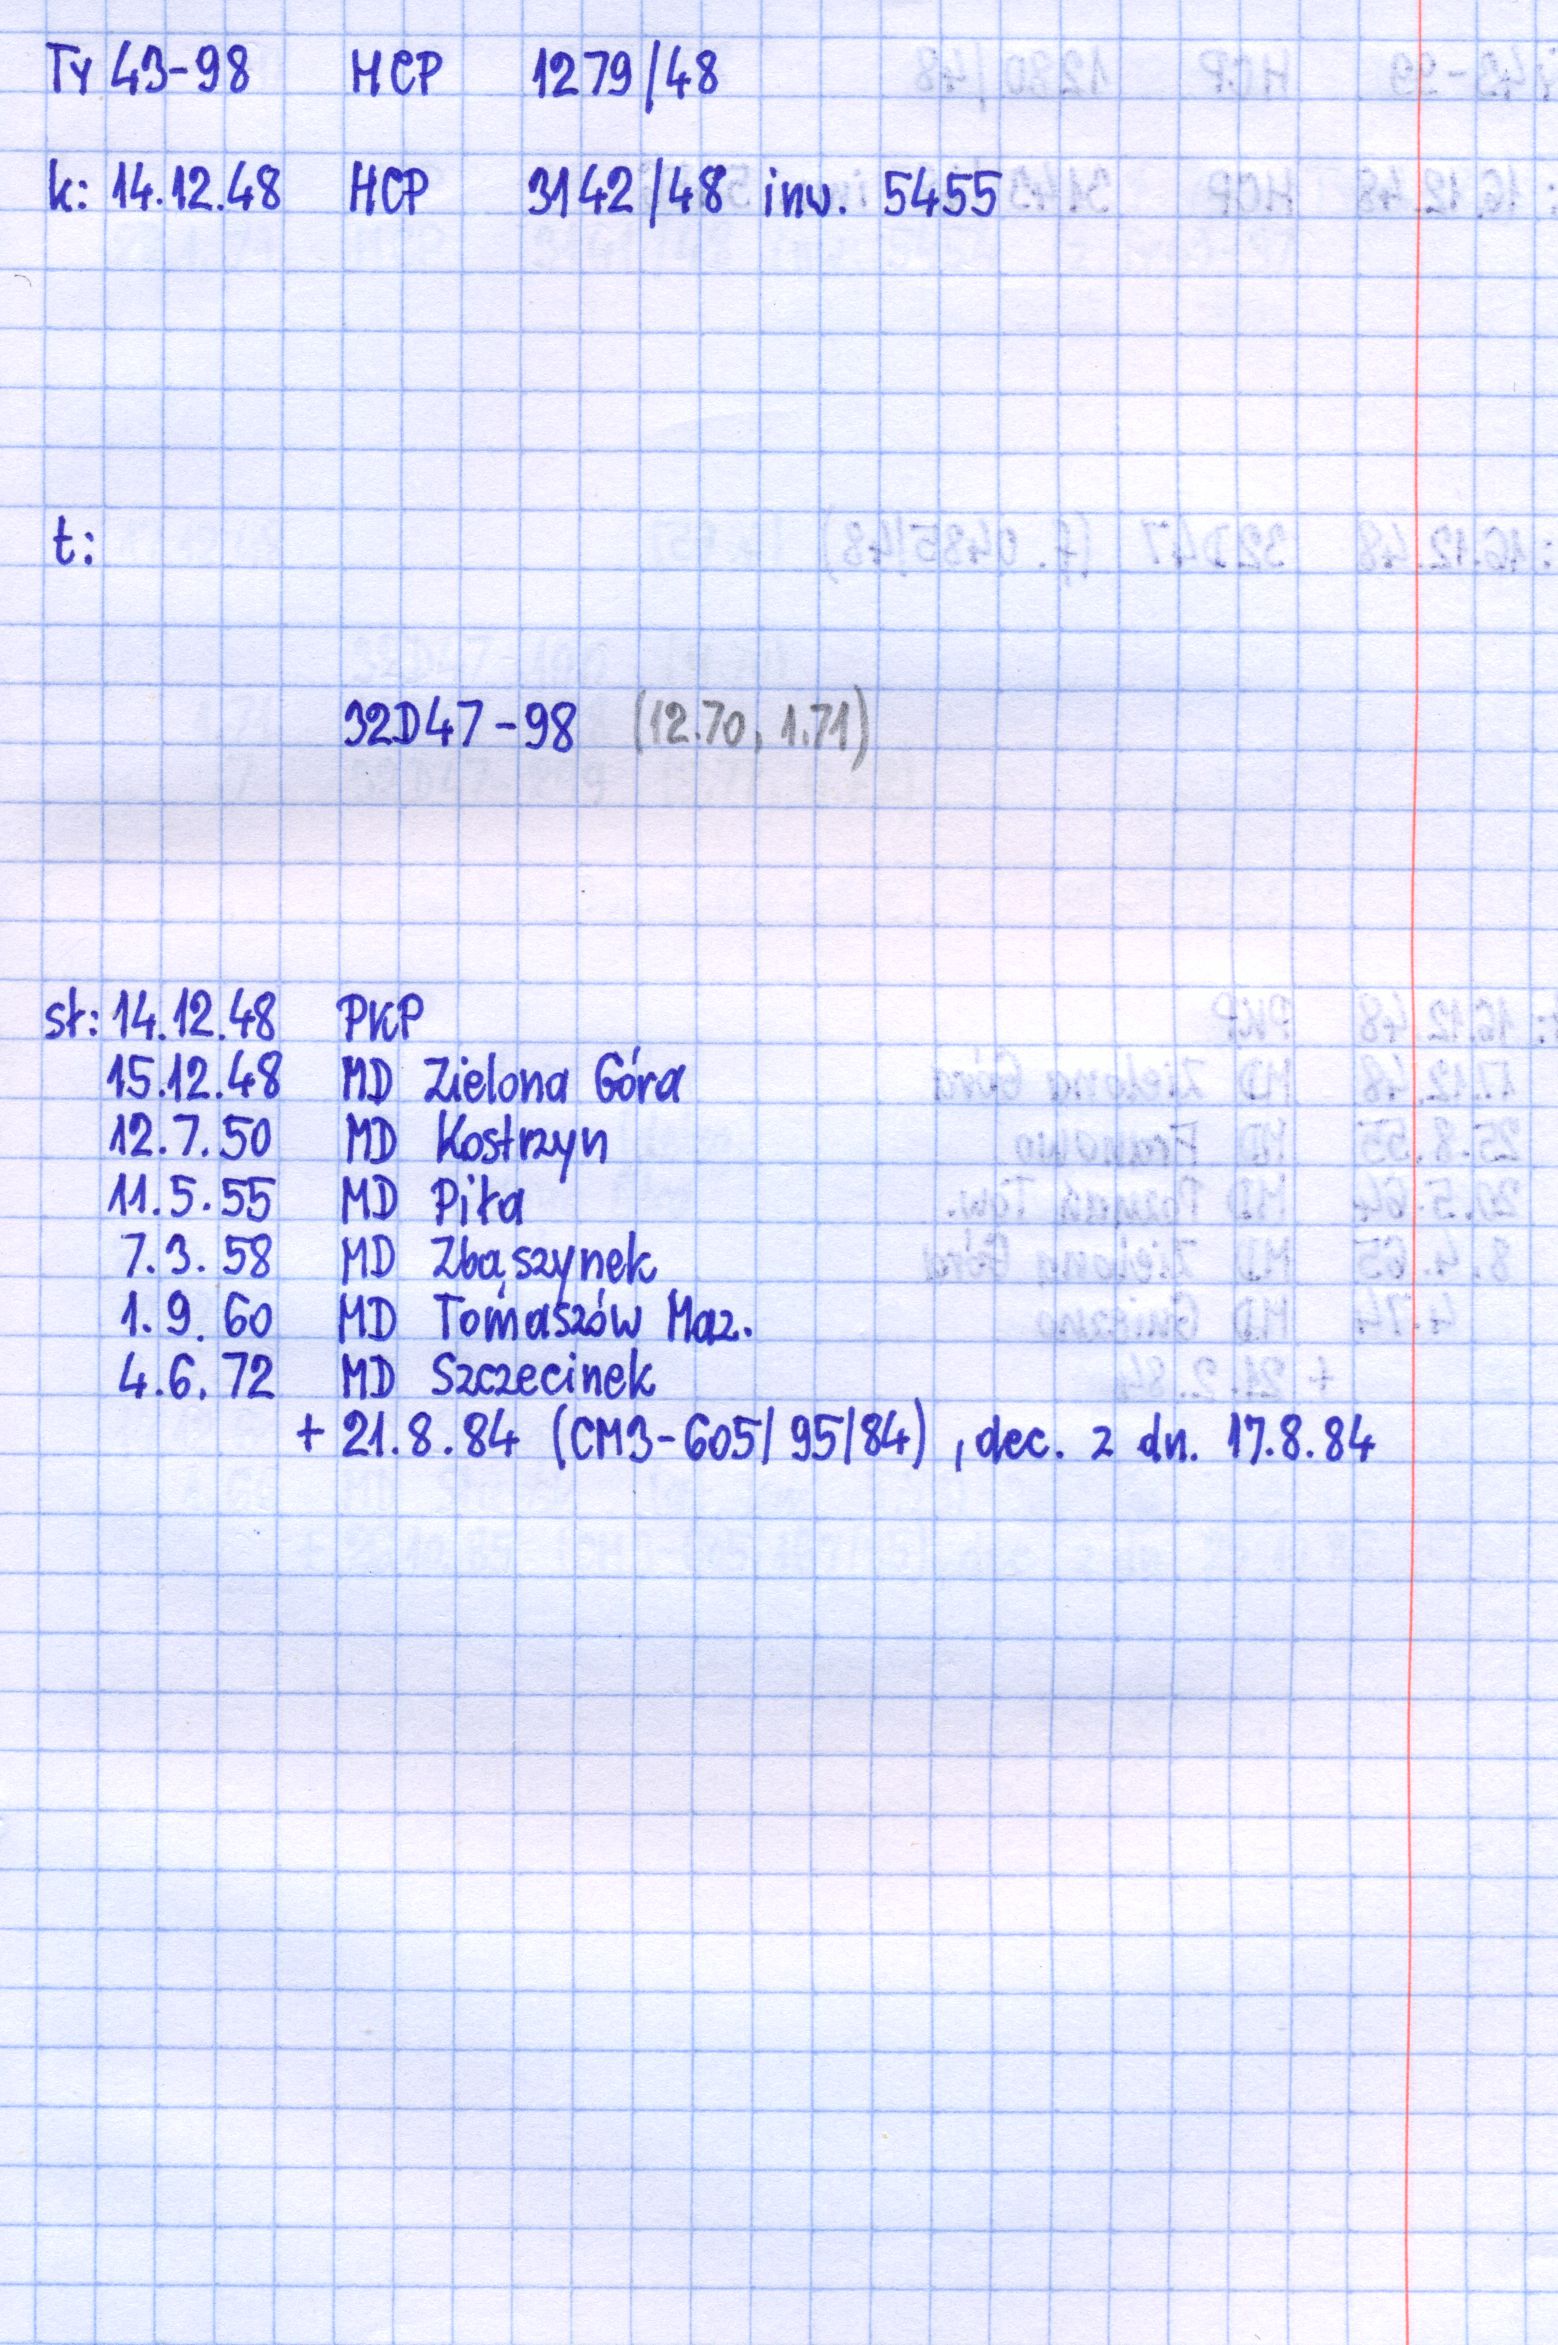 Ty 43-98 HCP 1279/48
k: 14.12.48 HCP 3142/48 inw. 5455
t:
32D47-98 (12.70, 1.71)
st: 14.12.48 PKP
15.12.48 MD Zielona Góra
12.7.50 MD Kostrzyn
11.5.55 MD Piła
7.3.58 MD Zbąszynek
1.9.60 MD Tomaszów Maz.
4.6.72 MD Szczecinek
+ 21.8.84 (CM3-605/95/84), dec. z dn. 17.8.84